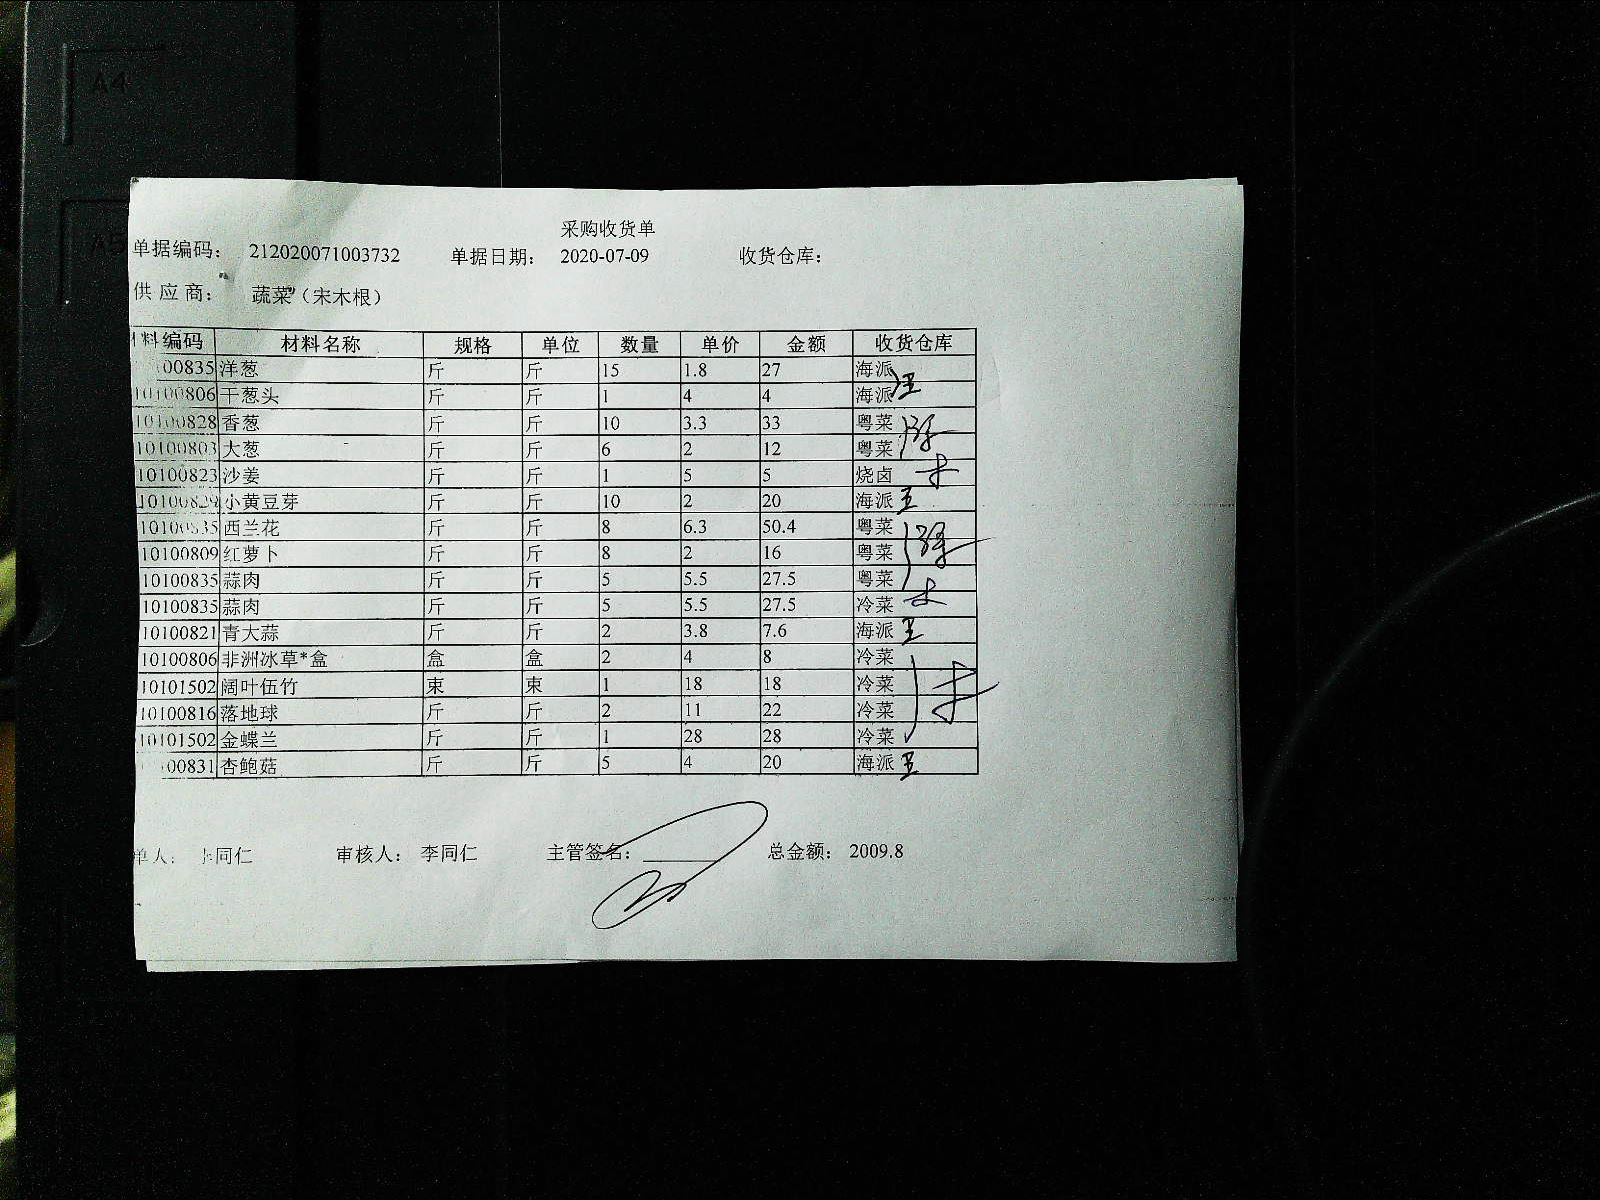 A4
A5
采购收货单
单据编码： 212020071003732 单据日期： 2020-07-09 收货仓库：
供应商： 蔬菜（宋木根）
料编码 材料名称 规格 单位 数量 单价 金额 收货仓库
00835 洋葱 斤 斤 15 1.8 27 海派
10100806 干葱头 斤 斤 1 4 4 海派 王
10100828 香葱 斤 斤 10 3.3 33 粤菜
10100803 大葱 斤 斤 6 2 12 粤菜
10100823 沙姜 斤 斤 1 5 5 烧卤
10100829 小黄豆芽 斤 斤 10 2 20 海派 王
10100835 西兰花 斤 斤 8 6.3 50.4 粤菜
10100809 红萝卜 斤 斤 8 2 16 粤菜
10100835 蒜肉 斤 斤 5 5.5 27.5 粤菜
10100835 蒜肉 斤 斤 5 5.5 27.5 冷菜
10100821 青大蒜 斤 斤 2 3.8 7.6 海派 王
10100806 非洲冰草*盒 盒 盒 2 4 8 冷菜
10101502 阔叶伍竹 束 束 1 18 18 冷菜
10100816 落地球 斤 斤 2 11 22 冷菜
10101502 金蝶兰 斤 斤 1 28 28 冷菜
00831 杏鲍菇 斤 斤 5 4 20 海派 王
单人： 同仁 审核人： 李同仁 主管签名： 总金额： 2009.8